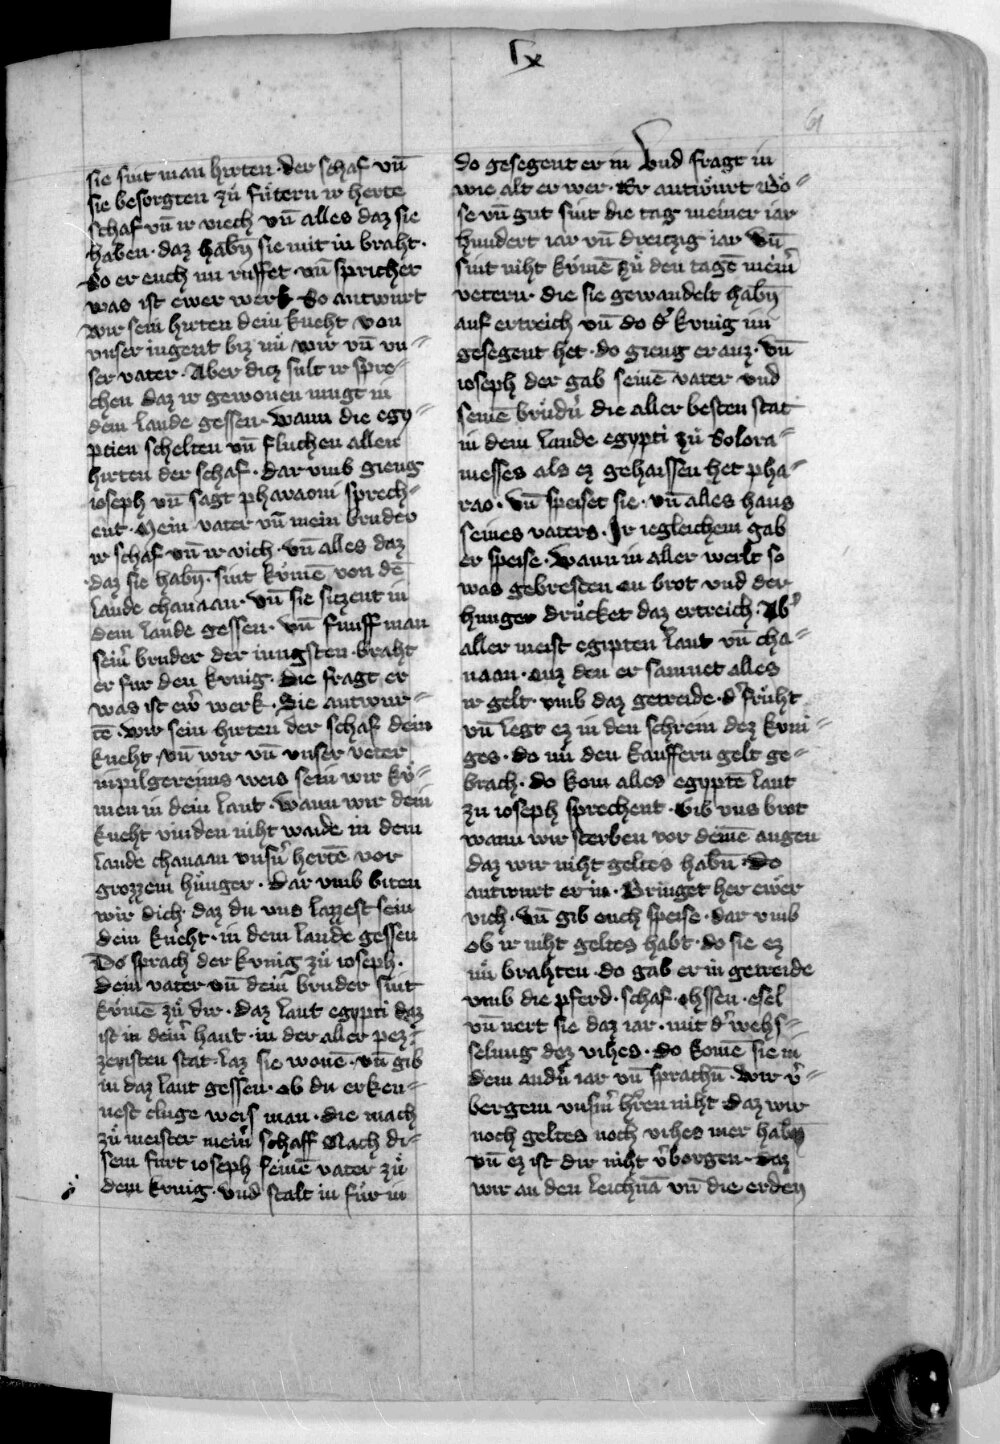 lx
61
sie sint man hirten · der schaf vn̄
sie besorgten zů fůtern ir herte
schaf vn̄ ir viech vn̄ alles daz sie
haben · daz habn̄ sie mit in braht ·
So er euch nu ruffet · vn̄ sprichet
was ist ewer werk So antwurt
wir sein hirten dein kneht von
vnser iugent biz nů wir vn̄ vn=
ser vater · Aber ditz sult ir spre=
chen daz ir gewonen mugt in
dem lande gessen · wann die egy=
ptien schelten vn̄ fluchen allen
hirten der schaf · dar vmb gieng
ioseph vn̄ sagt pharaoni sprech=
ent · Mein vater vn̄ mein bruder
ir schaf vn̄ ir vich · vn̄ alles daz
daz sie habn̄ · sint kůmē von dē
lande chanaan · vn̄ sie sitzent in
dem lande gessen · vn̄ funff man
seinr̄ bruder der iungsten · braht
er fur den kunig · die fragt er
was ist ewr̄ werk · Sie antwur=
tē · wir sein hirten der schaf dein
kneht · vn̄ wir vn̄ vnser veter
in pilgereims weis sein wir ků=
men in dein lant · wann wir dein
kneht vinden niht waide in dem
lande chanaan vnsn̄ hertē vor
grozzem hůnger · dar vmb biten
wir dich · daz du vns lazzest sein
dein kneht · in dem lande gessen
Do sprach der kunig zů ioseph ·
dein vater vn̄ dein bruder sint
kůmē zů dir · daz lant egypti daz
ist in deinr̄ hant · in der aller pez=
zeristen stat · laz sie wonē · vn̄ gib
in daz lant gessen · ob du erken=
nest cluge weis man · die mach
zů meister meinr̄ schaff Nach di=
sem furt ioseph seinē vater zů
dem kunig · vnd stalt in fůr in
do gesegent er in Vnd fragt in
wie alt er wer · Er antwůrt Bö=
se vn̄ gut sint die tag meiner iar
hundert iar vn̄ dreitzig iar vn̄
sint niht kůmē zů den tagē meinr̄
vetern · die sie gewandelt habn̄
auf ertreich vn̄ do d' kunig nu
gesegent het · do gieng er auz · vn̄
ioseph der gab seinē vater vnd
seinē brůdn̄ die aller besten stat
in dem lande egypti zů Solora=
messes als ez gehaissen het pha=
rao · vn̄ speiset sie · vn̄ alles haus
seines vaters · Ir iegleichem gab
er speise · wann in aller werlt so
was gebresten an brot vnd der
hunger drůcket daz ertreich · Ab'
aller meist egipten lant vn̄ cha=
naan · auz den er samnet alles
ir gelt vmb daz getreide · d' frůht
vn̄ legt ez in den schrein dez kuni=
ges · do nů den kauffern gelt ge=
brach · do kom alles egyptē lant
zu ioseph sprechent · Gib vns brot
wann wir sterben vor deinē augen
daz wir niht geltes habn̄ · Do
antwurt er in · Bringet her ewer
vich · vn̄ gib euch speise · dar vmb
ob ir niht geltes habt · do sie ez
nů brahten · do gab er in getreide
vmb die pferd · schaf · ohssen · esel
vn̄ nert sie daz iar · mit d' wehs=
selung dez vihes · do komē sie in
dem andn̄ iar vn̄ sprachn̄ · wir v'=
bergem vnsm̄ hr̄ren niht daz wir
noch geltes noch vihes mer habn̄
vn̄ ez ist dir niht v'borgen · daz
wir an den leichnā vn̄ die erden